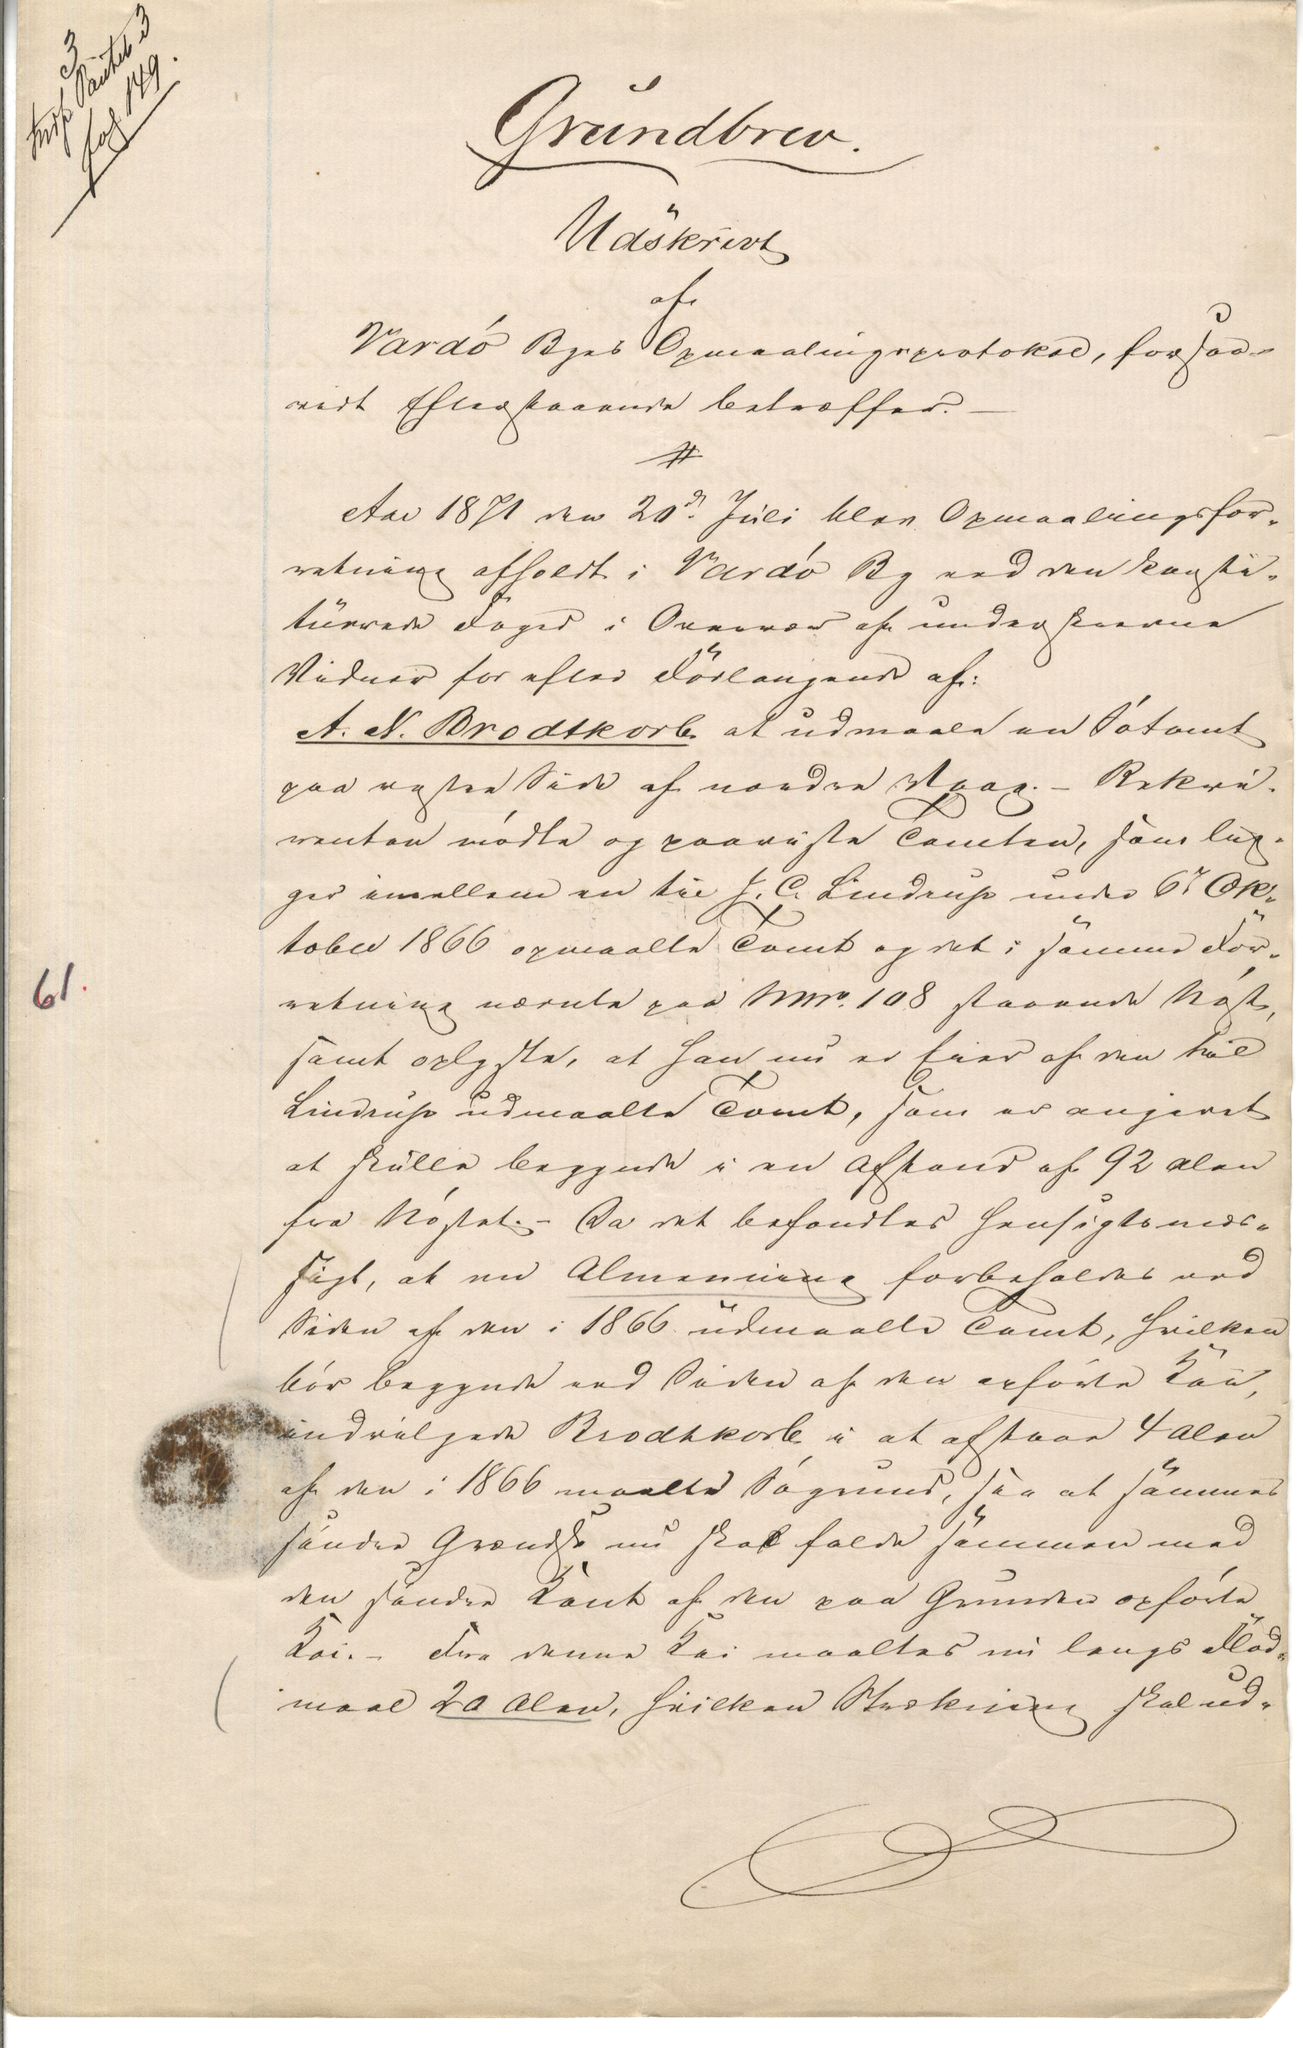 3
Panteb 3
fol 149.
Grundbrev.
Udskrivt
af
Vardö Byes Opmaalingsprotokol, forsaa-
vidt Efterstaaende betræffer.—
Aar 1871 den 20de Juli blev Opmaalingsfor-
retning afholdt i Vardö By ved den konsti-
tuerede Foged i Overvær af underskrevne
Vidner for efter Forlangende af:
A. N. Brodtkorb at udmaale en Sötomt
paa vestre Side af nordre Vaag.— Rekvi-
renten mödte og paaviste Tomten, som lig-
ger imellem en til J. C. Lindrup under 6te Ok-
tober 1866 opmaalte Tomt og det i samme For-
retning nævnte paa Nro. 108 staaende Nöst,
samt oplyste, at han nu er Eier af den til
Lindrup udmaalte Tomt, som er angivet
at skulle begynde i en Afstand af 92 Alen
fra Nöstet.— Da det befandtes hensigtsmæs-
sigt, at en Almenning forbeholdes ved
Siden af den i 1866 udmaalte Tomt, hvilken
bör begynde ved Siden af den opförte Kai,
indvilgede Brodtkorb i at afstaa 4 Alen
af den i 1866 maalte Sögrund, saa at sammes
söndre Grændse nu skal falde sammen med
den söndre Kant af den paa Grunden opförte
Kai.— Fra denne Kai maaltes nu langs Flod-
maal 20 Alen, hvilken Strækning skal ud-
61.